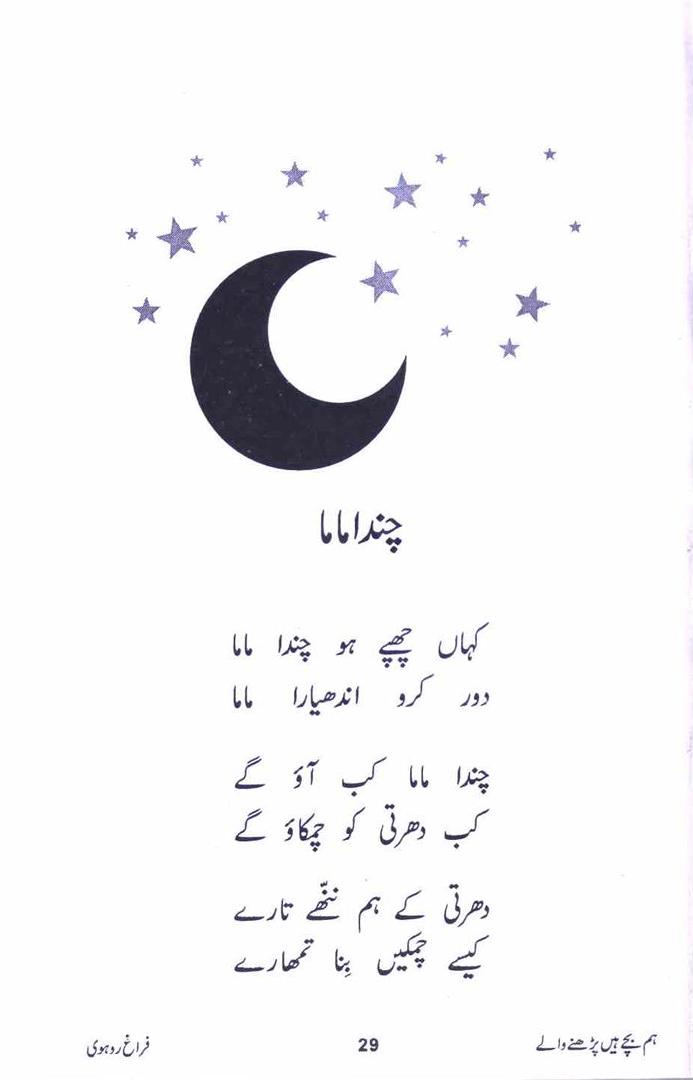 چندا ماما
کہاں چھپے ہو چندا ماما
دور کرو اندھیارا ماما
چندا ماما کب آؤ گے
کب دھرتی کو چمکاؤ گے
دھرتی کے ہم ننّھے تارے
کیسے چمکیں بِنا تمھارے
ہم بچے ہیں پڑھنے والے
29
فراغ روہوی